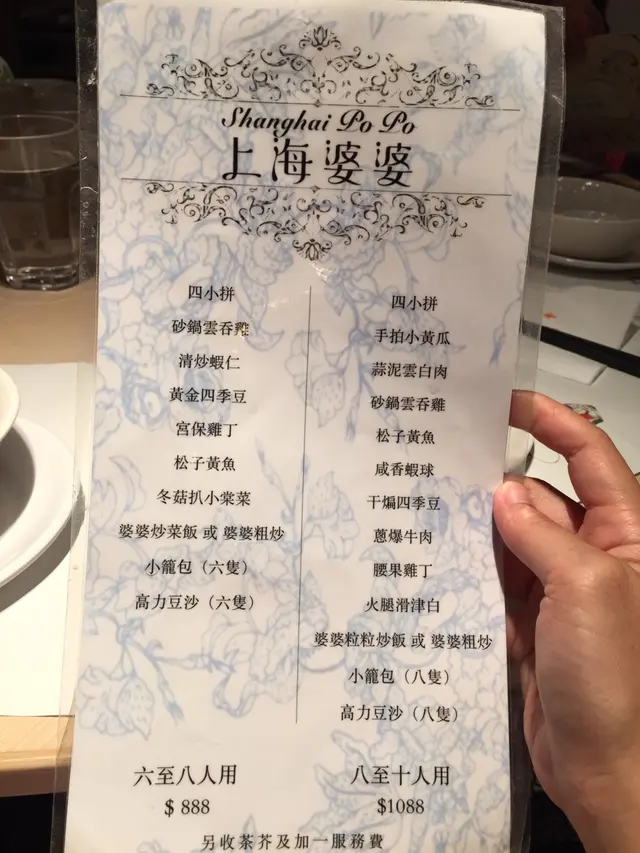 Shanghai Po Po
上海婆婆
四小拼
砂鍋雲吞雞
清炒蝦仁
黃金四季豆
宮保雞丁
松子黃魚
冬菇扒小棠菜
婆婆炒菜飯 或 婆婆粗炒
小籠包（六隻）
高力豆沙（六隻）
六至八人用
$ 888
四小拼
手拍小黃瓜
蒜泥雲白肉
砂鍋雲吞雞
松子黃魚
咸香蝦球
干煸四季豆
蔥爆牛肉
腰果雞丁
火腿滑津白
婆婆粒粒炒飯 或 婆婆粗炒
小籠包（八隻）
高力豆沙（八隻）
八至十人用
$1088
另收茶芥及加一服務費